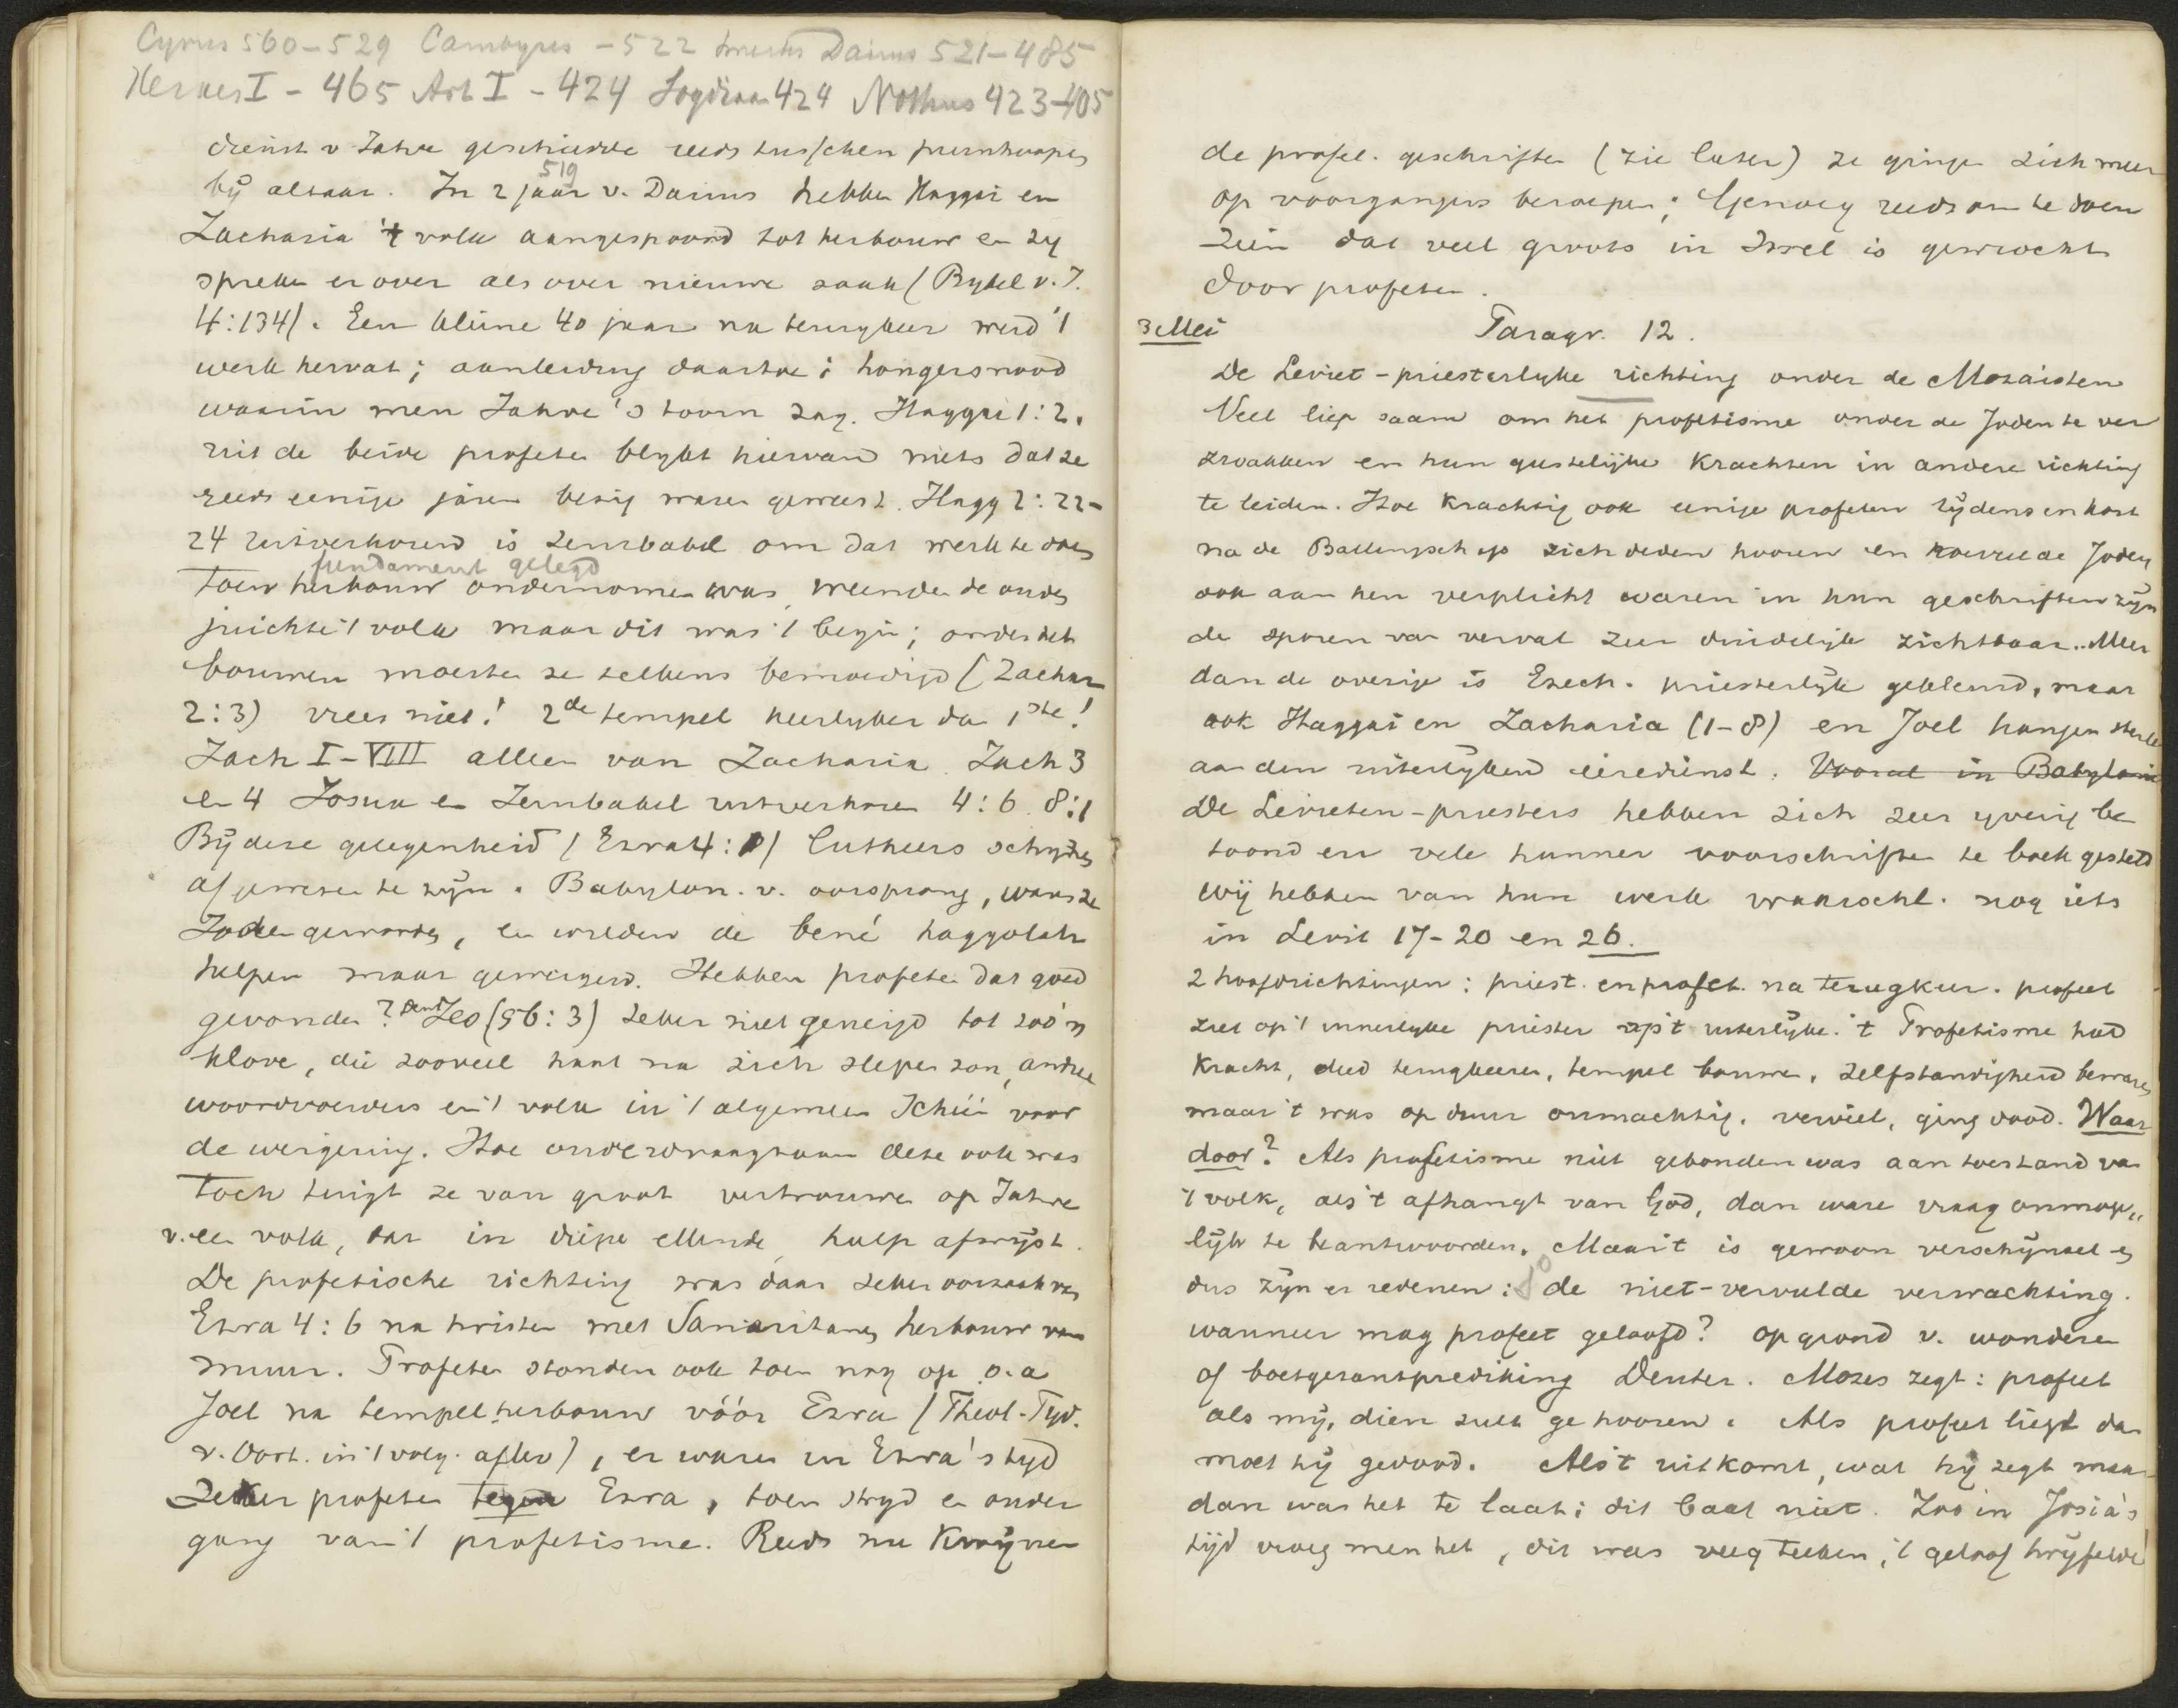 Cyrus 560-529 Cambyses -522 Smerdis Darius 521-485
Xerxes I - 465 Art I - 424 Sogdiaan 424 Nothus 423-405
dienst v Jahve geschiedde reeds tusschen puinhoopen
519
bij altaar. In 2 jaar v. Darius hebben Haggai en
Zacharia 't volk aangespoord tot herbouw en zij
spreken er over als over nieuwe zaak (Bybel v. J.
4:134). Een kleine 40 jaar na terugkeer werd 't
werk hervat; aanleiding daartoe: hongersnood
waarin men Jahve's toorn zag. Haggai 1:2.
uit de beide profeten blykt hiervan niets dat ze
reeds eenige jaren bezig waren geweest. Hagg 2:22-
24 uitverkoren is Zerubabel om dat werk te doen
fundament gelegd
Toen herbouw ondernomen was, weenden de ouden
juichte 't volk maar dit was 't begin; onder het
bouwen moesten ze telkens bemoedigd (Zachar
2:3) vrees niet! 2de tempel heerlyker dan 1ste!
Zach I-VIII alleen van Zacharia. Zach 3
en 4 Josua en Zerubabel uitverkoren 4:6. 8:1
Bij deze gelegenheid (Ezra 4:1) Cutheers schynen
afgewezen te zijn. Babylon. v. oorsprong, waren ze
Joden geworden, en wilden de bené haggolah
helpen maar geweigerd. Hebben profeten dat goed
gevonden? Deut Jes (56:3) zeker niet geneigd tot zoo'n
klove, die zooveel haat na zich slepen zou, andere
woordvoerders en 't volk in 't algemeen Ichüi voor
de weigering. Hoe onverdraagzaam deze ook was
Toch tuigt ze van groot vertrouwen op Jahve
v. een volk, dat in diepe ellende hulp afwijst.
De profetische richting was daar zeker oorzaak van
Ezra 4:6 na twisten met Samaritanen herbouw van
muur. Profeten stonden ook toen nog op o.a
Joel na tempelherbouw vóór Ezra (Theol. Tyd.
v. Oort. in 't volg. aflev), er waren in Ezra's tyd
Zeker profeten tegen Ezra, toen stryd en onder
gang van 't profetisme. Reeds nu kwijnen
de profet. geschriften (zie later) ze gingen zich meer
op voorgangers beroepen; Genoeg reeds om te doen
zien dat veel groots in Israel is gewrocht
door profeten.
3 Mei Paragr. 12.
De Leviet-priesterlyke richting onder de Mozaïsten
Veel liep saam om het profetisme onder de Joden te ver
zwakken en hun geestelijke krachten in andere richting
te leiden. Hoe krachtig ook eenige profeten tijdens en kort
na de Ballingschap zich deden hooren en hoeveel de Joden
ook aan hen verplicht waren in hun geschriften zijn
de sporen van verval zeer duidelijk zichtbaar. Meer
dan de overige is Ezech. priesterlijk gekleurd, maar
ook Haggai en Zacharia (1-8) en Joel hangen sterk
aan den uiterlyken eeredienst. Vooral in Babylonie
De Levieten-priesters hebben zich zeer yverig be
toond en vele hunner voorschriften te boek gesteld
wij hebben van hun werk waarschl. nog iets
in Levit 17-20 en 26.
2 hoofdrichtingen: priest. en profet. na terugkeer. profeet
ziet op 't innerlyke priester op 't uiterlyke. 't Profetisme had
kracht, deed terugkeeren, tempel bouwen, zelfstandigheid bewaren,
maar 't was op duur onmachtig. verviel, ging dood. Waar
door? Als profetisme niet gebonden was aan toestand van
't volk, als 't afhangt van God, dan ware vraag onmoge„
lijk te beantwoorden. Maar 't is gewoon verschijnsel en
dus zijn er redenen: 1o de niet-vervulde verwachting.
wanneer mag profeet geloofd? op grond v. wonderen
of boetgezantprediking Deuter. Mozes zegt: profeet
als mij, dien zult ge hooren. Als profeet liegt dan
moet hij gedood. Als 't uitkomt, wat hij zegt maar
dan was het te laat; dit baat niet. Zoo in Josia's
tijd vroeg men het, dit was veeg teeken, 't geloof twyfelde